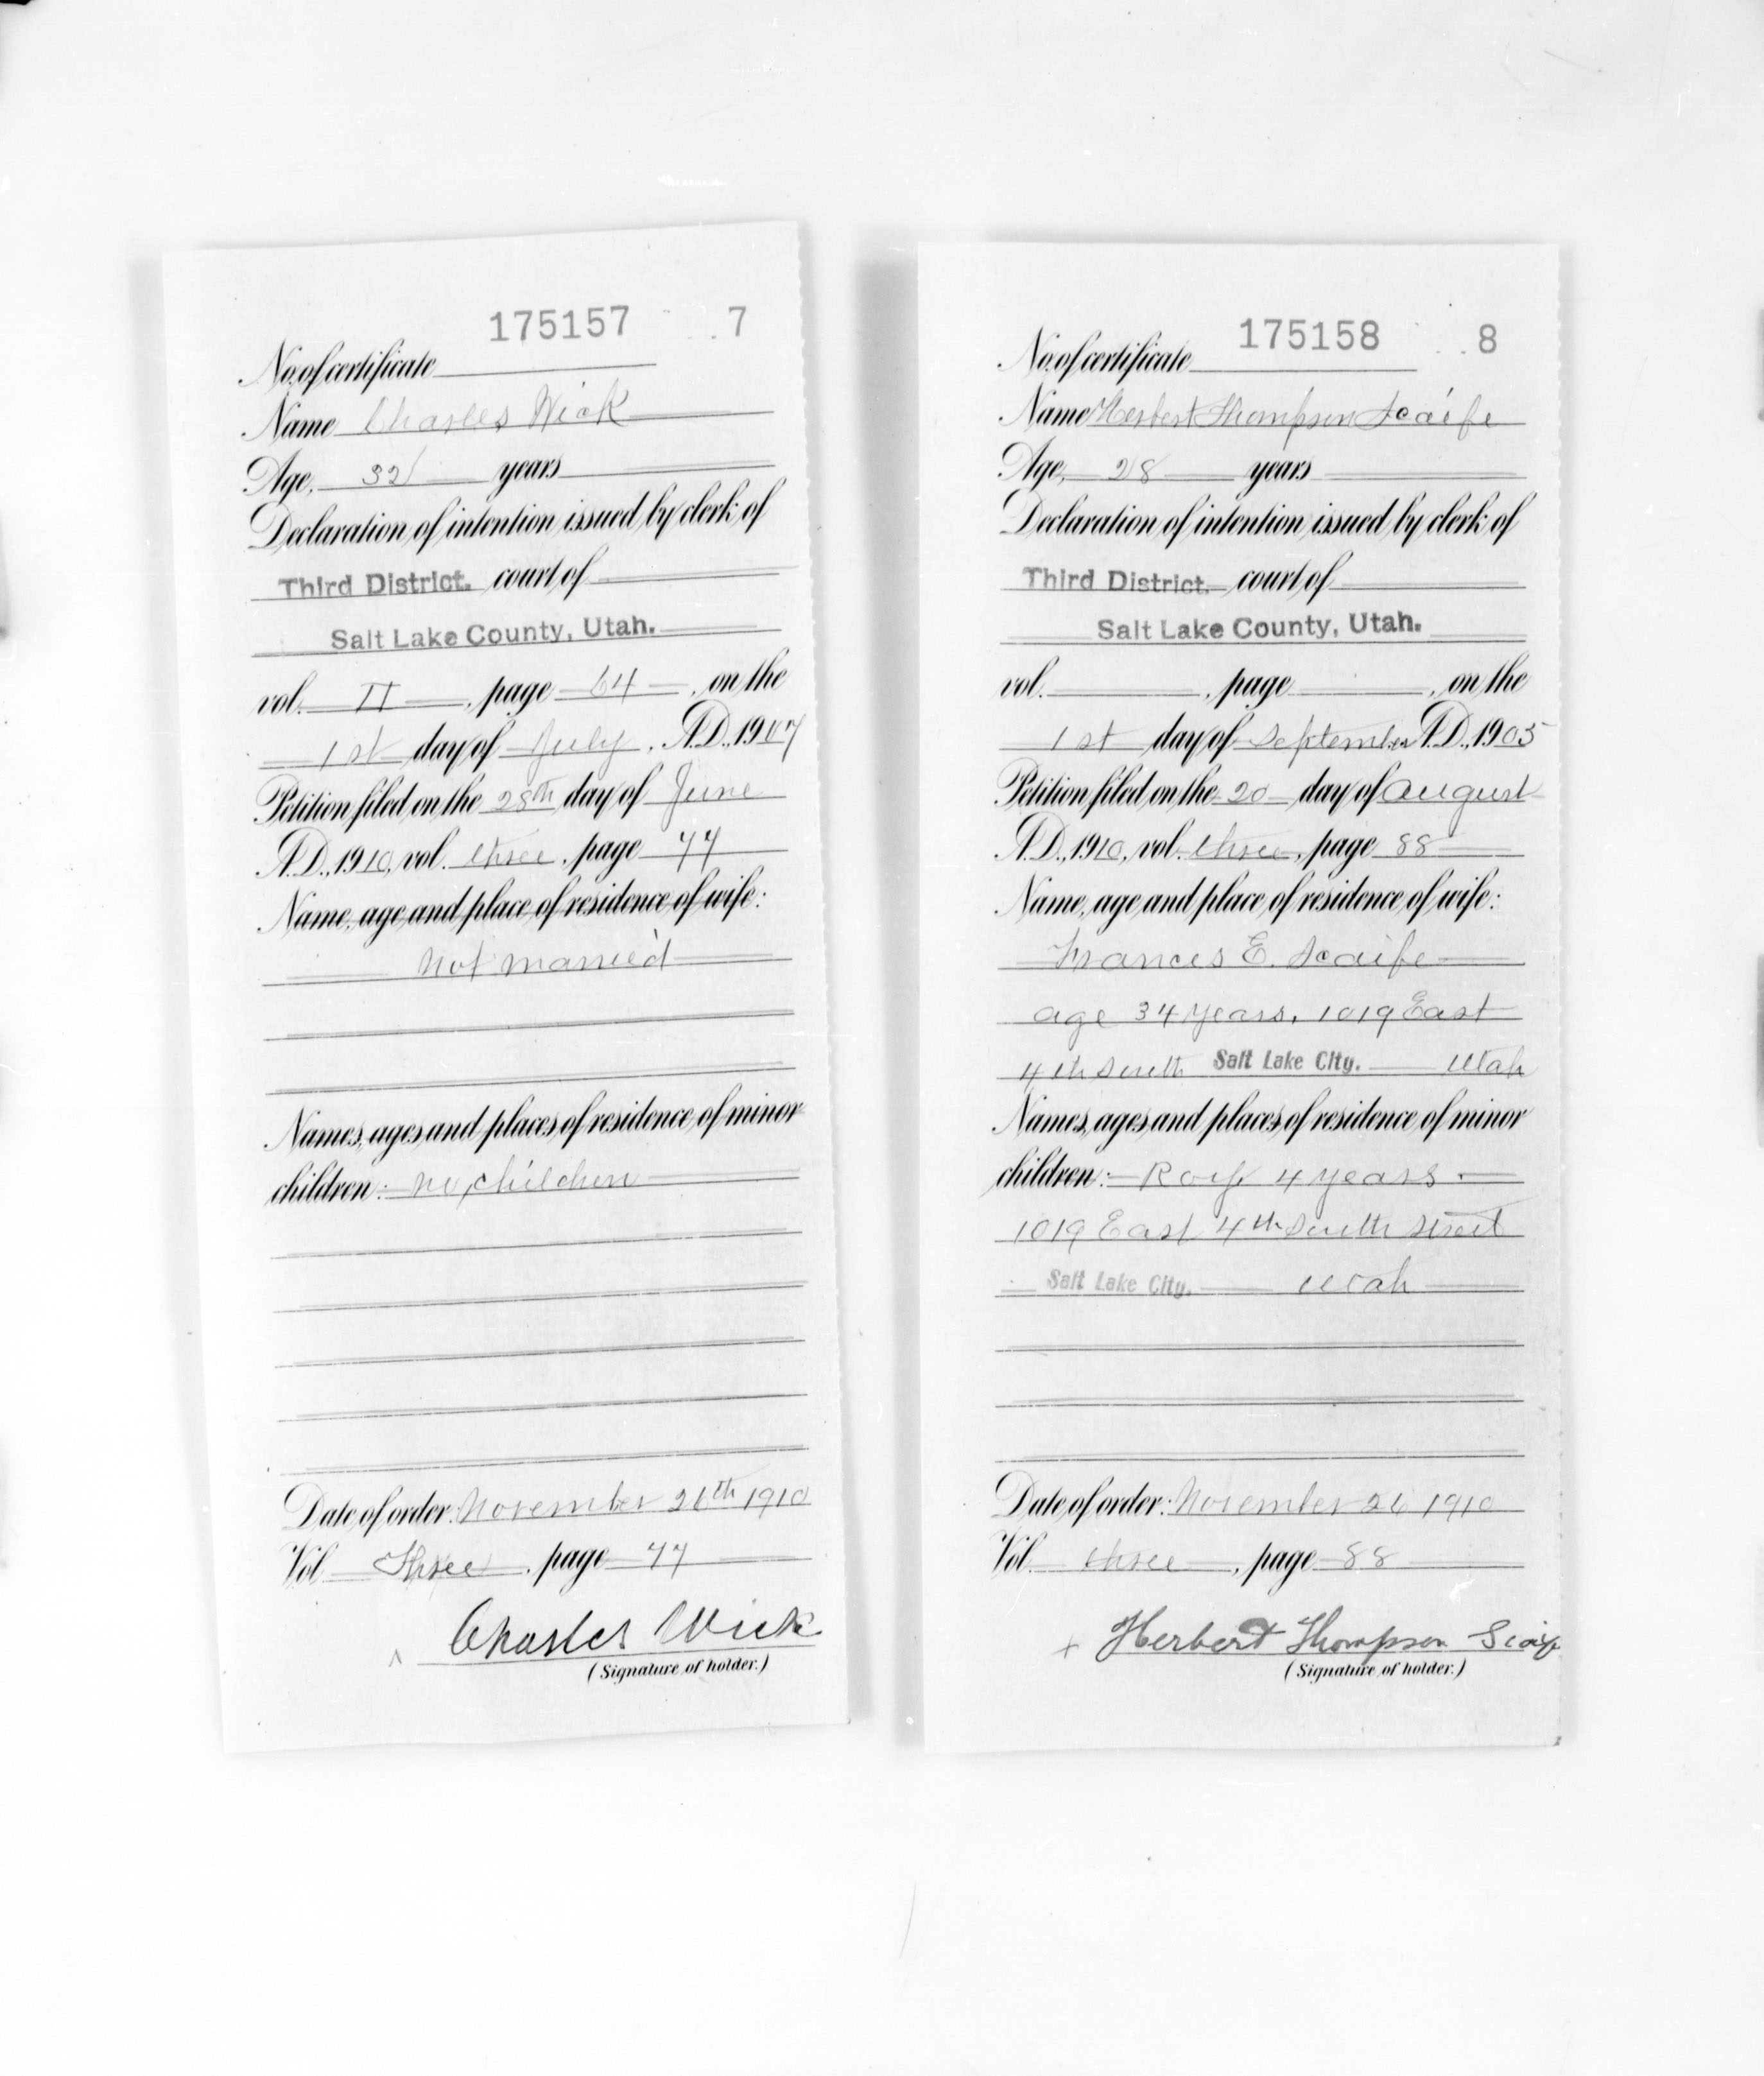 175157 7
No. of certificate
Name Charles Wick
Age, 32 years
Declaration of intention issued by clerk of
Third District. court of
Salt Lake County, Utah.
vol. II, page 64, on the
1st day of July, A.D., 1907
Petition filed on the 28th day of June
A.D., 1910, vol. three, page 77
Name, age and place of residence of wife:
Not married
Names, ages and places of residence of minor
children: no children
Date of order: November 26th 1910
Vol. Three, page 77
Charles Wick
(Signature of holder.)
175158 8
No. of certificate
Name Herbert Thompson Scaife
Age, 28 years
Declaration of intention issued by clerk of
Third District. court of
Salt Lake County, Utah.
vol. , page , on the
1st day of September A.D., 1905
Petition filed on the 20 day of August
A.D., 1910, vol. three, page 88
Name, age and place of residence of wife:
Frances E. Scaife
age 34 years, 1019 East
4th South Salt Lake City. Utah
Names, ages and places of residence of minor
children: 4 years.
1019 East 4th South Street
Salt Lake City. Utah
Date of order: November 26 1910
Vol. three, page 88
Herbert Thompson Scaife
(Signature of holder.)